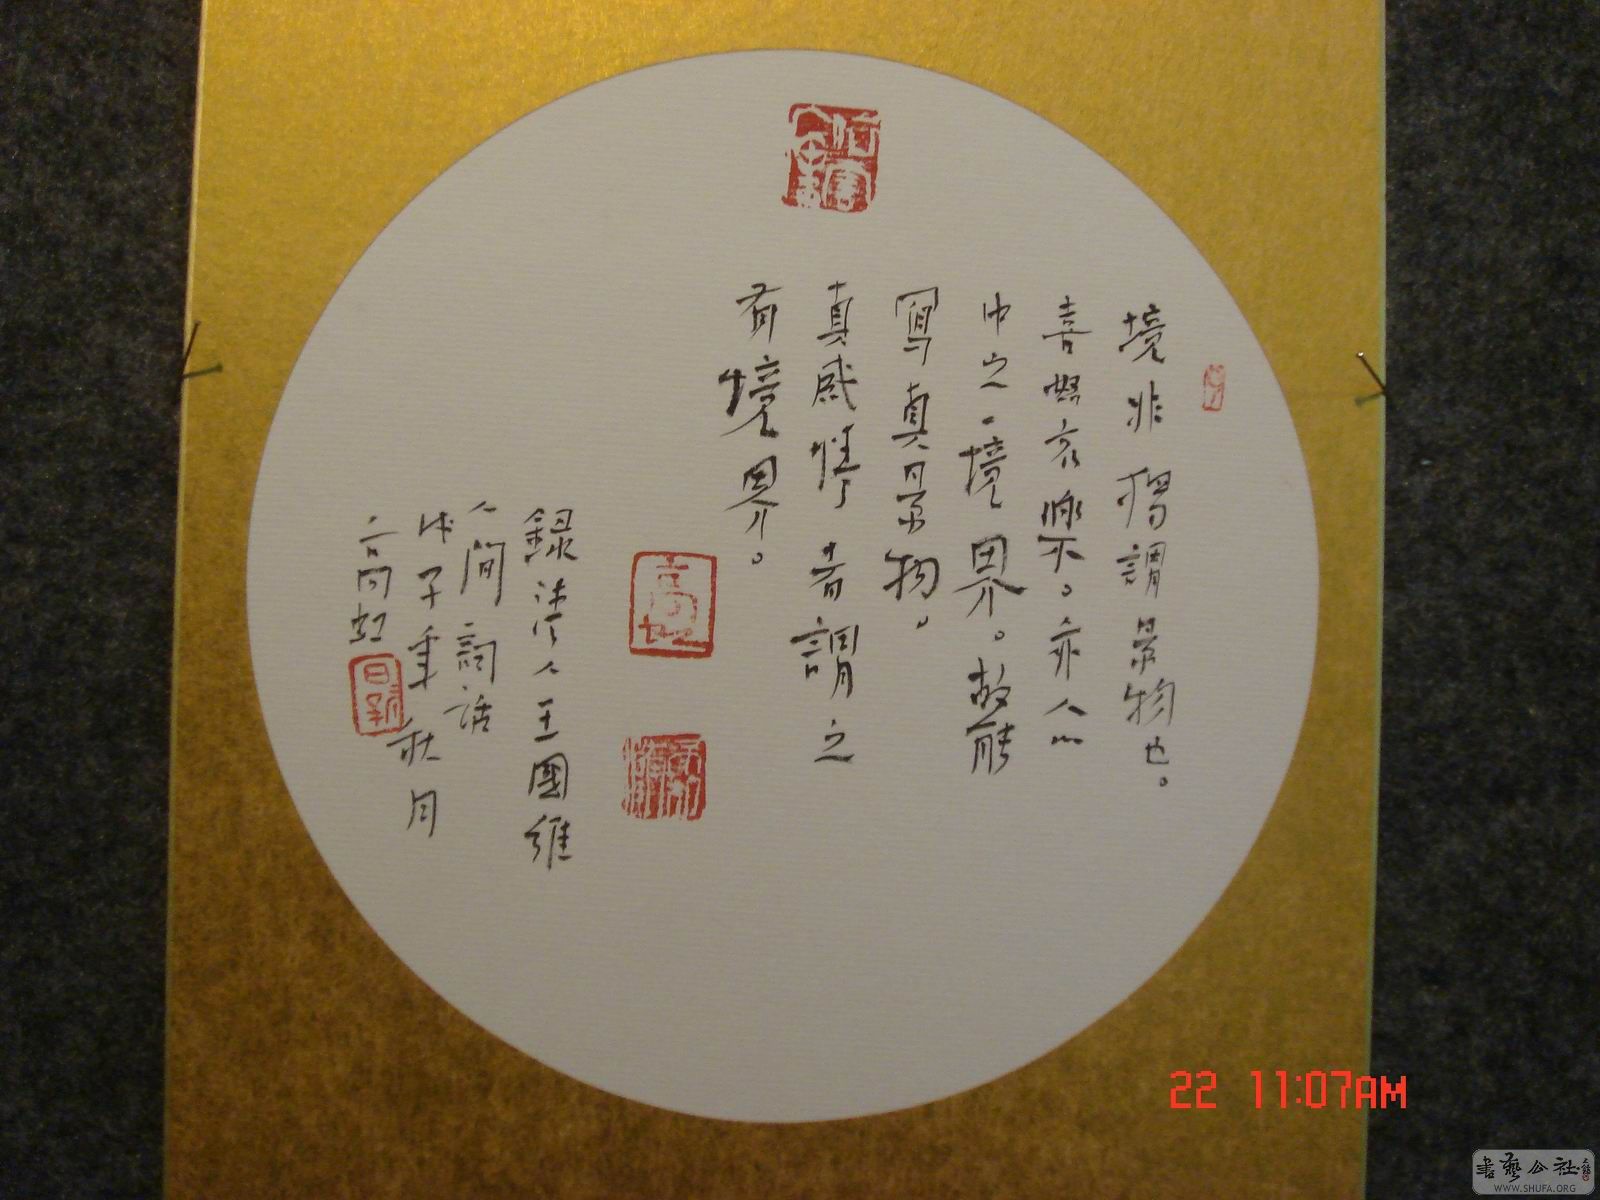 境非獨謂景物也。
喜怒哀樂。亦人心
中之一境界。故能
寫真景物。
真感情者謂之
有境界。
錄清人王國維
人間詞話
戊子年秋月
高虹
高虹
日新
22 11:07AM
書藝公社
WWW.SHUFA.ORG